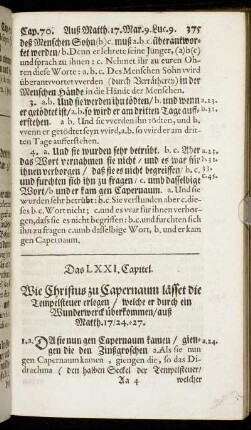 Cap.70. Auß Matth.17.Mar.9.Luc.9. 375
deß Menschen Sohn (b) c. muß a.b.c. überantwor-
tet werden / b. Denn er lehrete seine Jünger, (a)b(c)
und sprach zu ihnen : c. Nehmet ihr zu euren Oh-
ren diese Worte : a.b.c. Des Menschen Sohn wird
überantwortet werden (durch Verräthery) in der
Menschen Hände in die Hände der Menschen.
3. a.b. Und sie werden ihn tödten / b. und wenn
er getödtet ist / a.b. so wird er am dritten Tage auff-
erstehen. a b. Und sie werden ihn tödten, und b.
wenn er getödtet seyn wird, a.b. so wird er am drit-
ten Tage aufferstehen.
4. a. Und sie wurden sehr betrübt. b.c. Aber
das Wort vernahmen sie nicht / und es war für
ihnen verborgen / daß sie es nicht begreiffen / b.c.
und furchten sich ihn zu fragen / c. umb dasselbige
Wort / b und er kam gen Capernaum. a. Und sie
wurden sehr betrübt : b.c. Sie verstunden aber c. die-
ses b.c. Wort nicht; c. und es war für ihnen verbor-
gen, daß sie es nicht begreiffen : b.c. und furchten sich
ihn zu fragen c. umb dasselbige Wort, b. und er kam
gen Capernaum.
Das LXXI. Capitel.
Wie Christus zu Capernaum lässet die
Tempelsteuer erlegen / welche er durch ein
Wunderwerck überkommen / auß
Matth.17/24.-27.
1.2. DA sie nun gen Capernaum kamen / gien-
gen die den Zinßgroschen a. Als sie nun
gen Capernaum kamen, giengen die, so das Di-
drachma (den halben Seckel der Tempelsteuer /
Aa 4 welcher